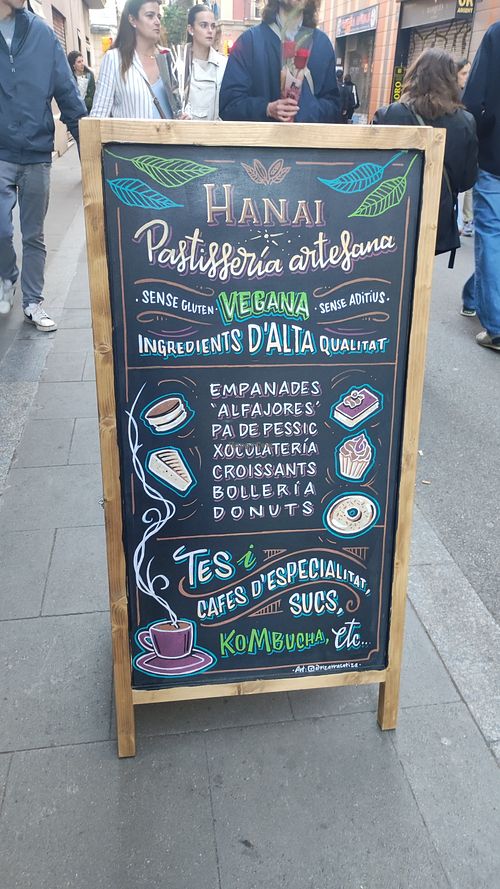 HANAI
Pastisseria artesana
· SENSE GLUTEN · VEGANA · SENSE ADITIUS ·
INGREDIENTS D'ALTA QUALITAT
EMPANADES
'ALFAJORES'
PA DE PESSIC
XOCOLATERÍA
CROISSANTS
BOLLERÍA
DONUTS
TES i
CAFES D'ESPECIALITAT,
SUCS,
KOMBUCHA, etc...